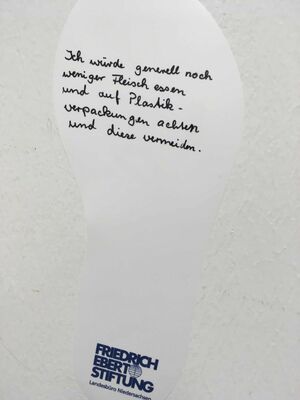 Ich würde generell noch
weniger Fleisch essen
und auf Plastik-
verpackungen achten
und diese vermeiden.
FRIEDRICH
EBERT
STIFTUNG
Landesbüro Niedersachsen